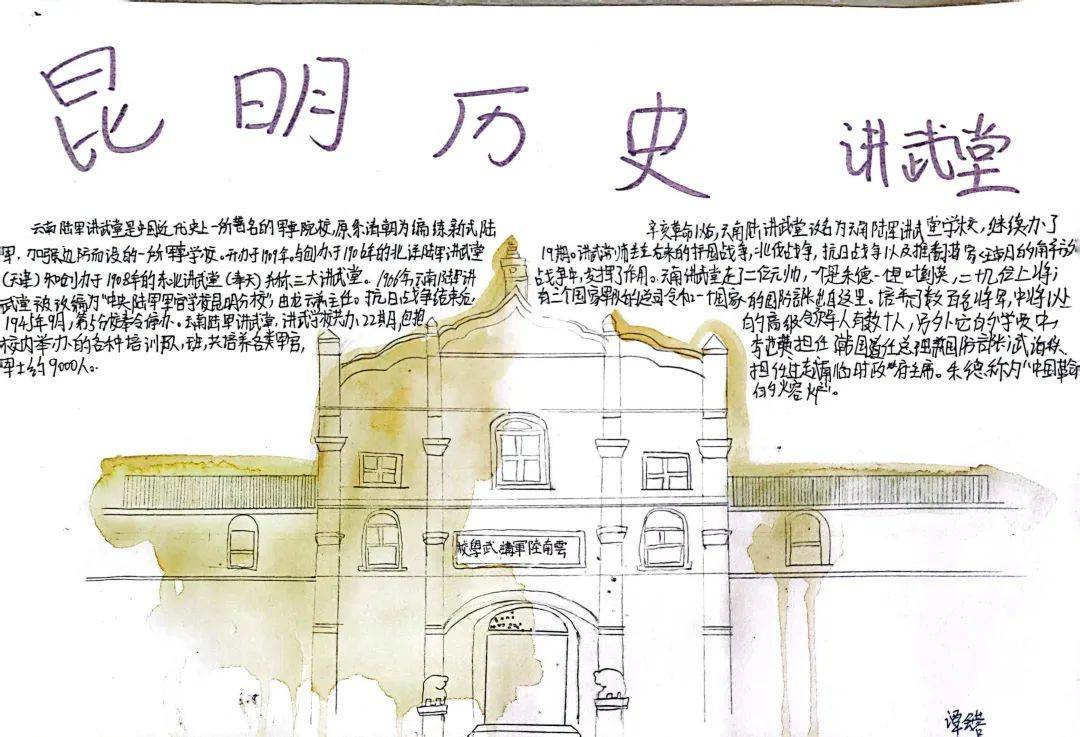 昆明历史 讲武堂
云南陆军讲武堂是我国近代史上一所著名的军事院校,原系清朝为编练新式陆
军,加强边防而设的一所军事学校。开办于1909年,与创办于1906年的北洋陆军讲武堂
(天津)和创办于1908年的东北讲武堂(奉天)并称三大讲武堂。
武堂被改编为“中央陆军军官学校昆明分校”,由龙云兼主任。抗日战争结束后,
1945年9月,第5分校奉令停办。云南陆军讲武堂,讲武学校共办22期,包括
校内举办的各种培训队,班,共培养各类军官,
军士约9000人。
辛亥革命以后,云南陆军讲武堂改名为云南陆军讲武堂学校,继续办了
19期。讲武堂师生在后来的护国战争,北伐战争,抗日战争以及推翻蒋家王朝的解放
战争中,发挥了作用。云南讲武堂走了二位元帅,一个是朱德一把叶剑英,二十几位上将;
有三个国家军队的总司令和一个国家的国防部长出自这里。培养了数百名将军,中将以上
的高级领导人有数十人,另外它的学员中,
李范奭担任韩国首任总理兼国防部长,武海秋
担任过越南临时政府主席。朱德称为“中国革命
的熔炉”。
雲南陸軍講武學校
谭